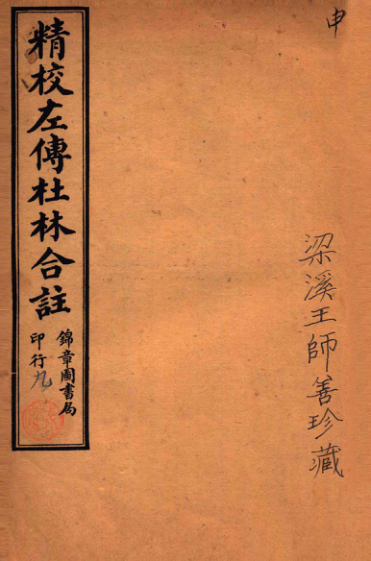 申
梁溪王師善珍藏
精校左傳杜林合註
錦章圖書局
印行九